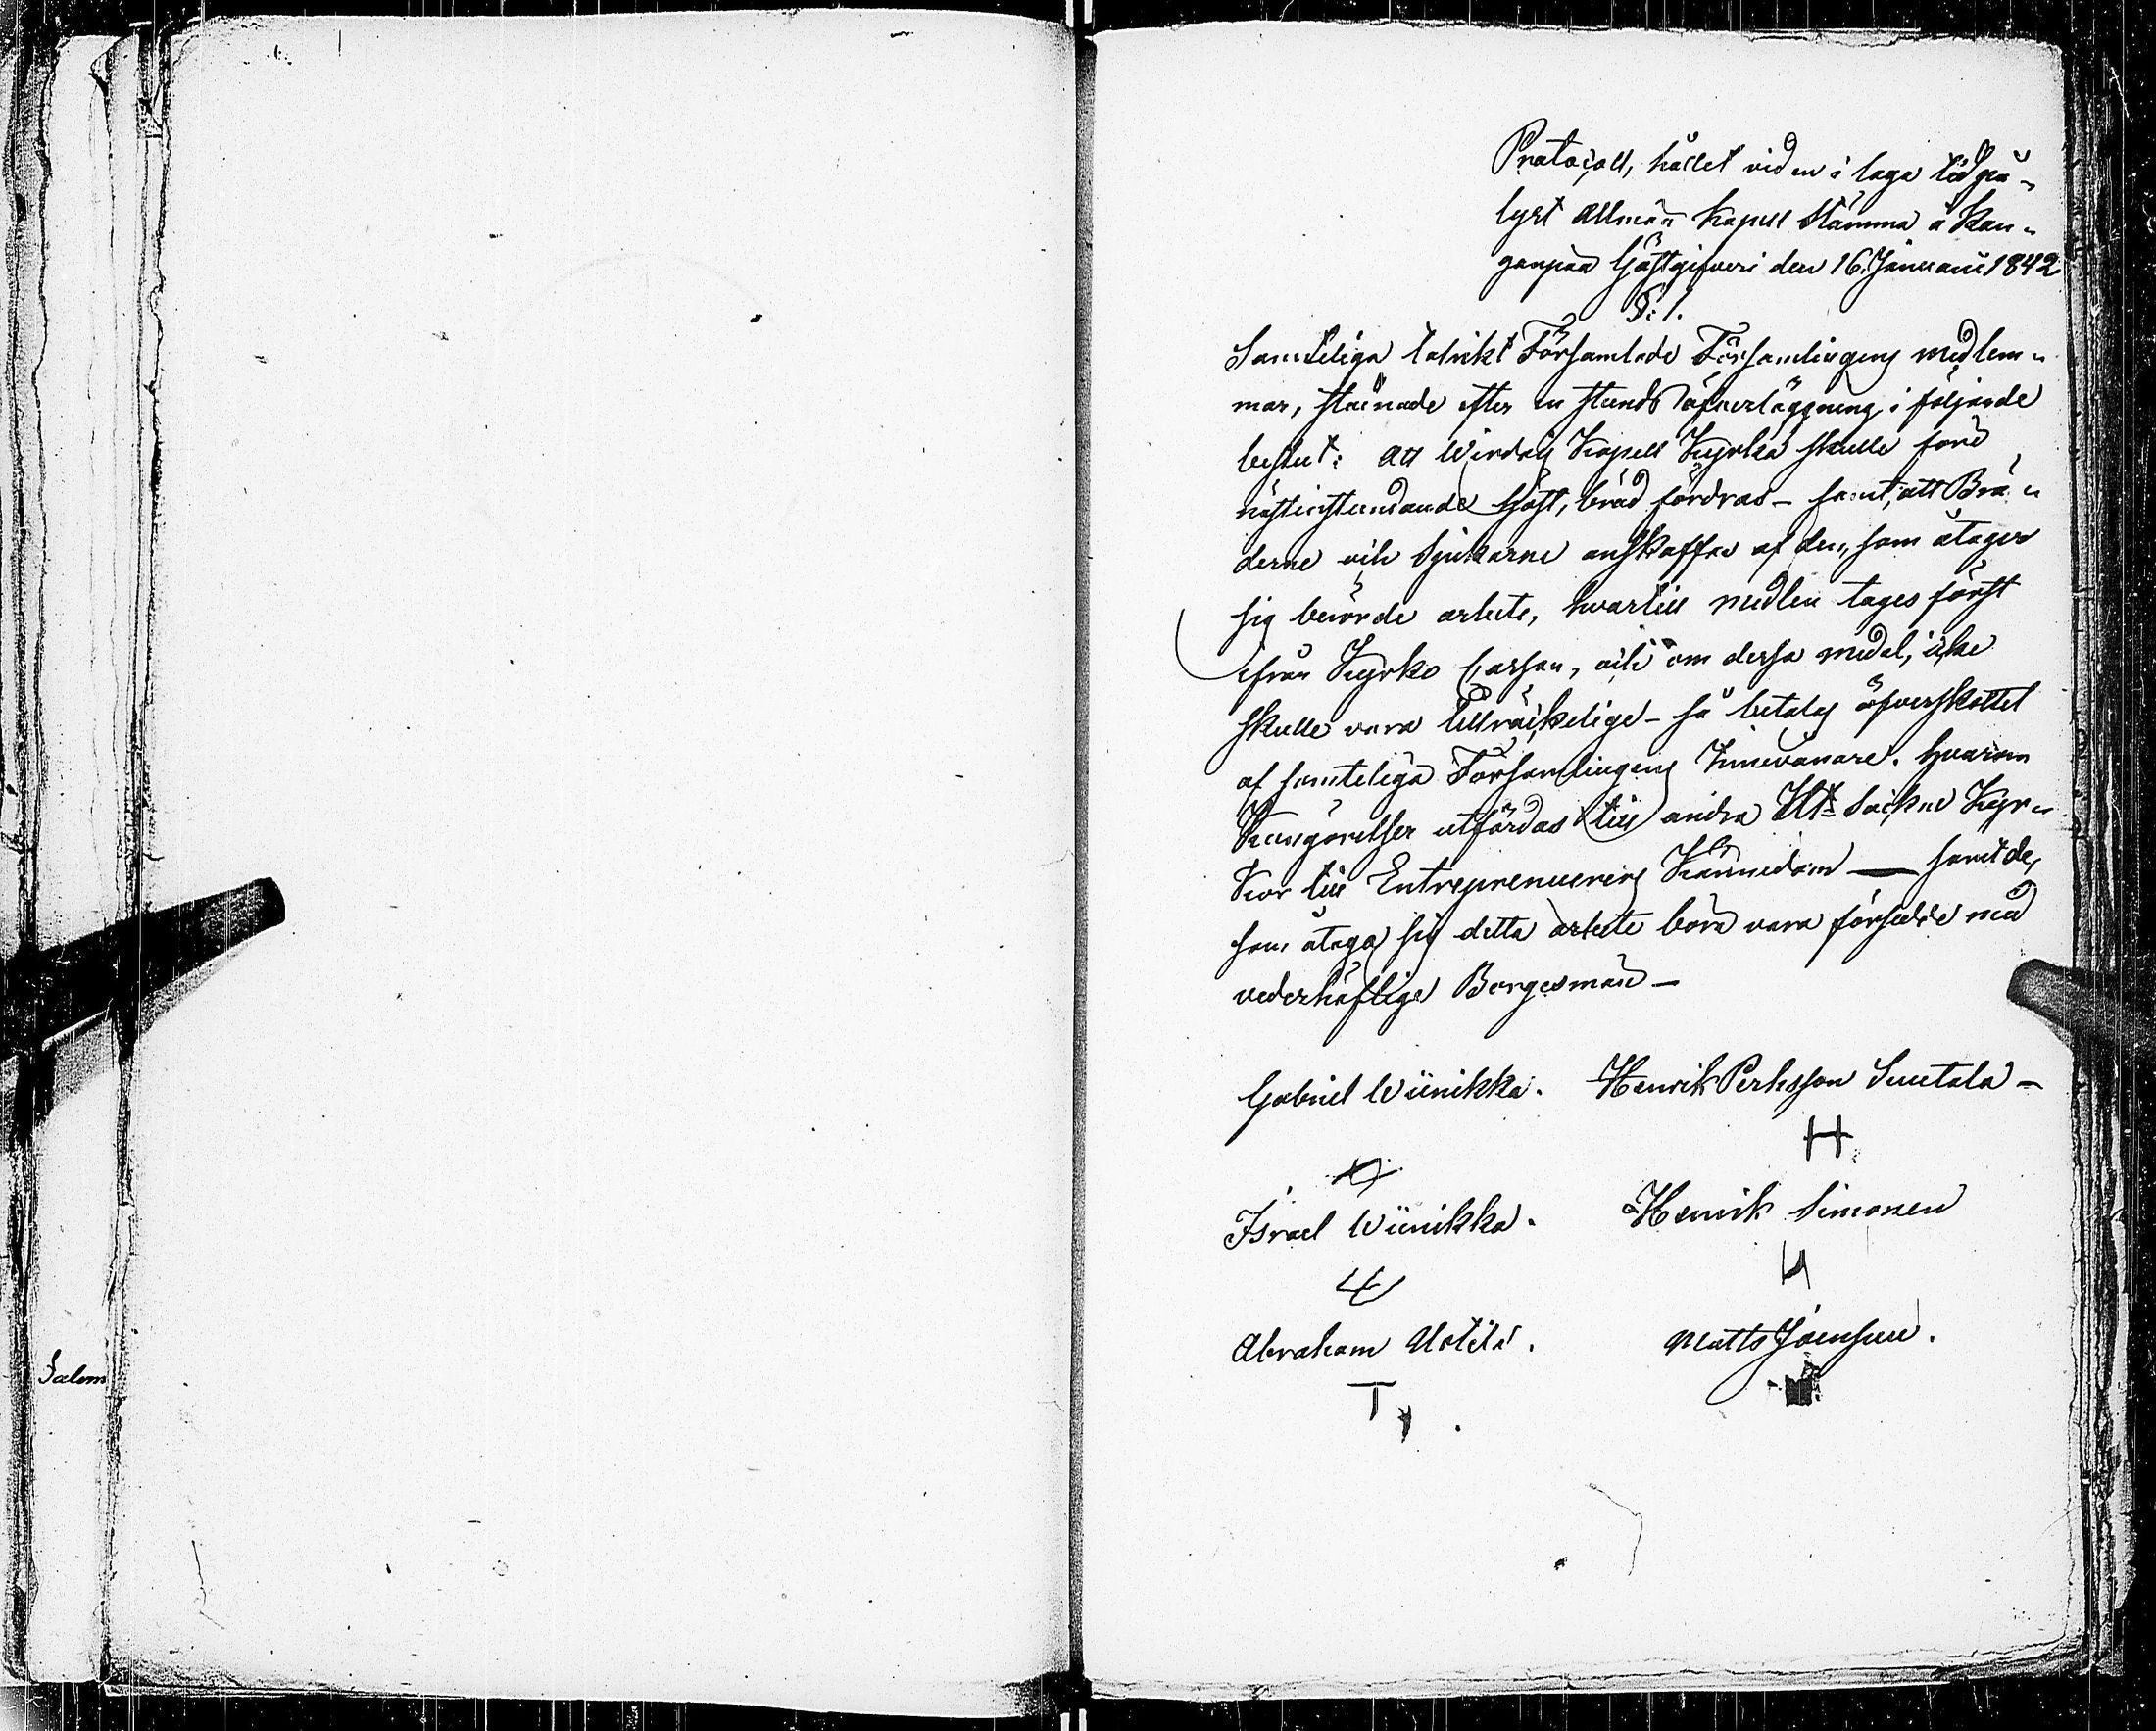 Protocoll, hållet vid en i laga tid på-
lyst Allmän Kapell Stämma å Kan-
ganpää Gästgifveri den 16 Januarii 1842
S: 1.
Samteliga talrikt Församlade Församlingens medlem-
mar, stannade efter en stunds öfverläggning i följande
beslut: Att Virdois Kapell Kyrka skulle före
nästinstundande höst, bräd fordras – samt, att Brä-
derne och Spikarne anskaffas af den, som åtager
sig berörde arbete, hvartill medlen tages först
ifrån Kyrko Cassan, och om dessa medel, icke
skulle vara tillräckelige – så betalas öfverskottet
af samteliga Församlingens Innevånare. Hvarom
Kungörelser utfärdas till andra Socknes Kyr-
kor till Entreprenneurers Kännedom — samt de,
som åtaga sig detta arbete böra vara försedde med
vederhäftige Borgesmän –
Gabriel Wiinikka. Henrik Perhsson Suutala –
H
Israel Wiinikka. Henrik Simonen
H
Abraham Uotila. Matts Joensuu.
T
Salem